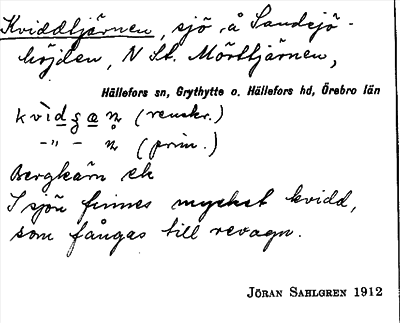 Kviddtjärnen, sjö å Sandsjö-
höjden, N St. Mörttjärnen,
Hällefors sn, Grythytte o. Hällefors hd, Örebro län
(renskr.)
-"- n (prim.)
Bergkärn ek
I sjön finnes mycket kvidd,
som fångas till revagn.
JÖRAN SAHLGREN 1912